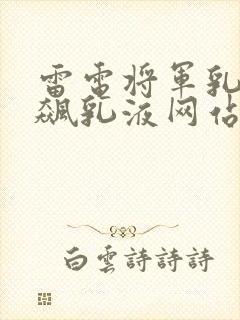 雷電将軍乳
飆乳液网佔
白雲詩詩詩